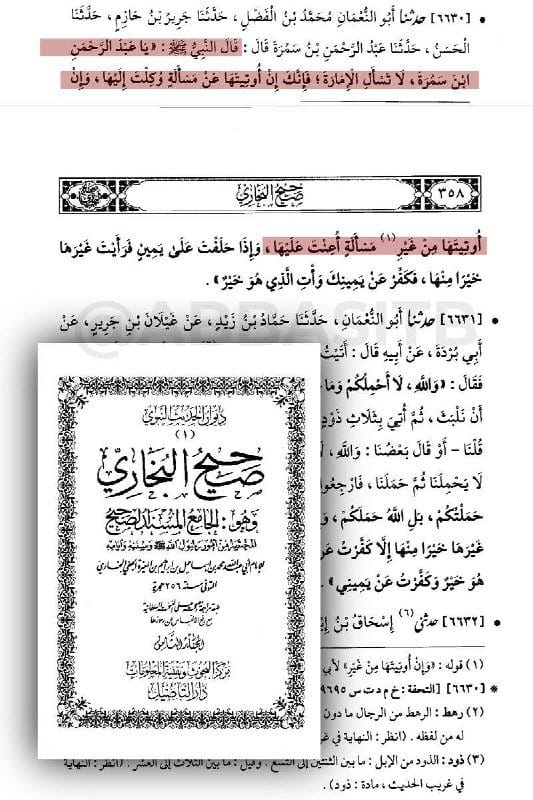 • [٦٦٣٠] حدثنا أَبُو النُّعْمَانِ مُحَمَّدُ بْنُ الْفَضْلِ ، حَدَّثَنَا جَرِيرُ بْنُ حَازِمٍ ، حَدَّثَنَا
الْحَسَنُ ، حَدَّثَنَا عَبْدُ الرَّحْمَنِ بْنُ سَمُرَةَ قَالَ : قَالَ النَّبِيُّ ﷺ : «يَا عَبْدَ الرَّحْمَنِ
ابْنَ سَمُرَةَ ، لَا تَسْأَلِ الْإِمَارَةَ ؛ فَإِنَّكَ إِنْ أُوتِيتَهَا عَنْ مَسْأَلَةٍ وُكِلْتَ إِلَيْهَا ، وَإِنْ
٣٥٨ صَحِيحُ الْبُخَارِيِّ
أُوتِيتَهَا مِنْ غَيْرِ (١) مَسْأَلَةٍ أُعِنْتَ عَلَيْهَا ، وَإِذَا حَلَفْتَ عَلَى يَمِينٍ فَرَأَيْتَ غَيْرَهَا
خَيْرًا مِنْهَا ، فَكَفِّرْ عَنْ يَمِينِكَ وَأْتِ الَّذِي هُوَ خَيْرٌ» .
@ABBASITB
• [٦٦٣١] حدثنا أَبُو النُّعْمَانِ ، حَدَّثَنَا حَمَّادُ بْنُ زَيْدٍ ، عَنْ غَيْلَانَ بْنِ جَرِيرٍ ، عَنْ
أَبِي بُرْدَةَ ، عَنْ أَبِيهِ قَالَ : أَتَيْتُ
فَقَالَ : «وَاللَّهِ ، لَا أَحْمِلُكُمْ وَمَا
أَنْ نَلْبَثَ ، ثُمَّ أُتِيَ بِثَلَاثِ ذَوْدٍ
قُلْنَا - أَوْ قَالَ بَعْضُنَا : وَاللَّهِ ، لَا
لَا يَحْمِلَنَا ثُمَّ حَمَلَنَا ، فَارْجِعُوا
حَمَلْتُكُمْ ، بَلِ اللَّهُ حَمَلَكُمْ ، وَ
غَيْرَهَا خَيْرًا مِنْهَا إِلَّا كَفَّرْتُ عَنْ
هُوَ خَيْرٌ وَكَفَّرْتُ عَنْ يَمِينِي» .
• [٦٦٣٢] حدثني (٦) إِسْحَاقُ بْنُ إِبْ
(١) قوله : «وَإِنْ أُوتِيتَهَا مِنْ غَيْرِ» لأبي
* [٦٦٣٠] [التحفة : خ م د ت س ٩٦٩٥
(٢) رهط : الرهط من الرجال ما دون
له من لفظه . (انظر : النهاية في غر
(٣) ذود : الذود من الإبل : ما بين الثنتين إلى التسع . وقيل : ما بين الثلاث إلى العشر . (انظر : النهاية
في غريب الحديث ، مادة : ذود) .
ديوان الحديث النبوي
(١)
صَحِيحُ الْبُخَارِيِّ
وَهُوَ : الْجَامِعُ الْمُسْنَدُ الصَّحِيحُ
المختصر من أمور رسول الله ﷺ وسننه وأيامه
للإمام أبي عبد الله محمد بن إسماعيل بن إبراهيم بن المغيرة الجعفي البخاري
المتوفى سنة ٢٥٦ هجرية
المجلد الثامن
مركز البحوث وتقنية المعلومات
دار التأصيل